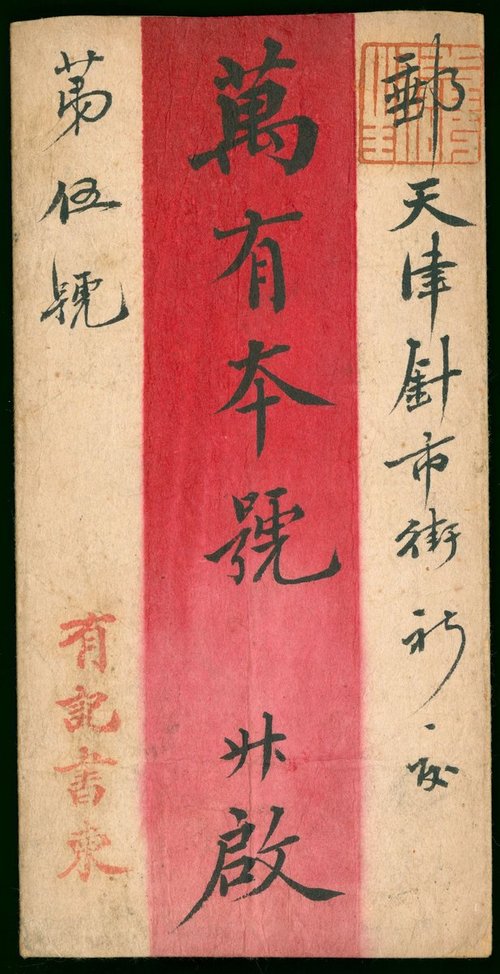 郵天津針市街祈
萬有本號升啟
苐伍號
有記書柬